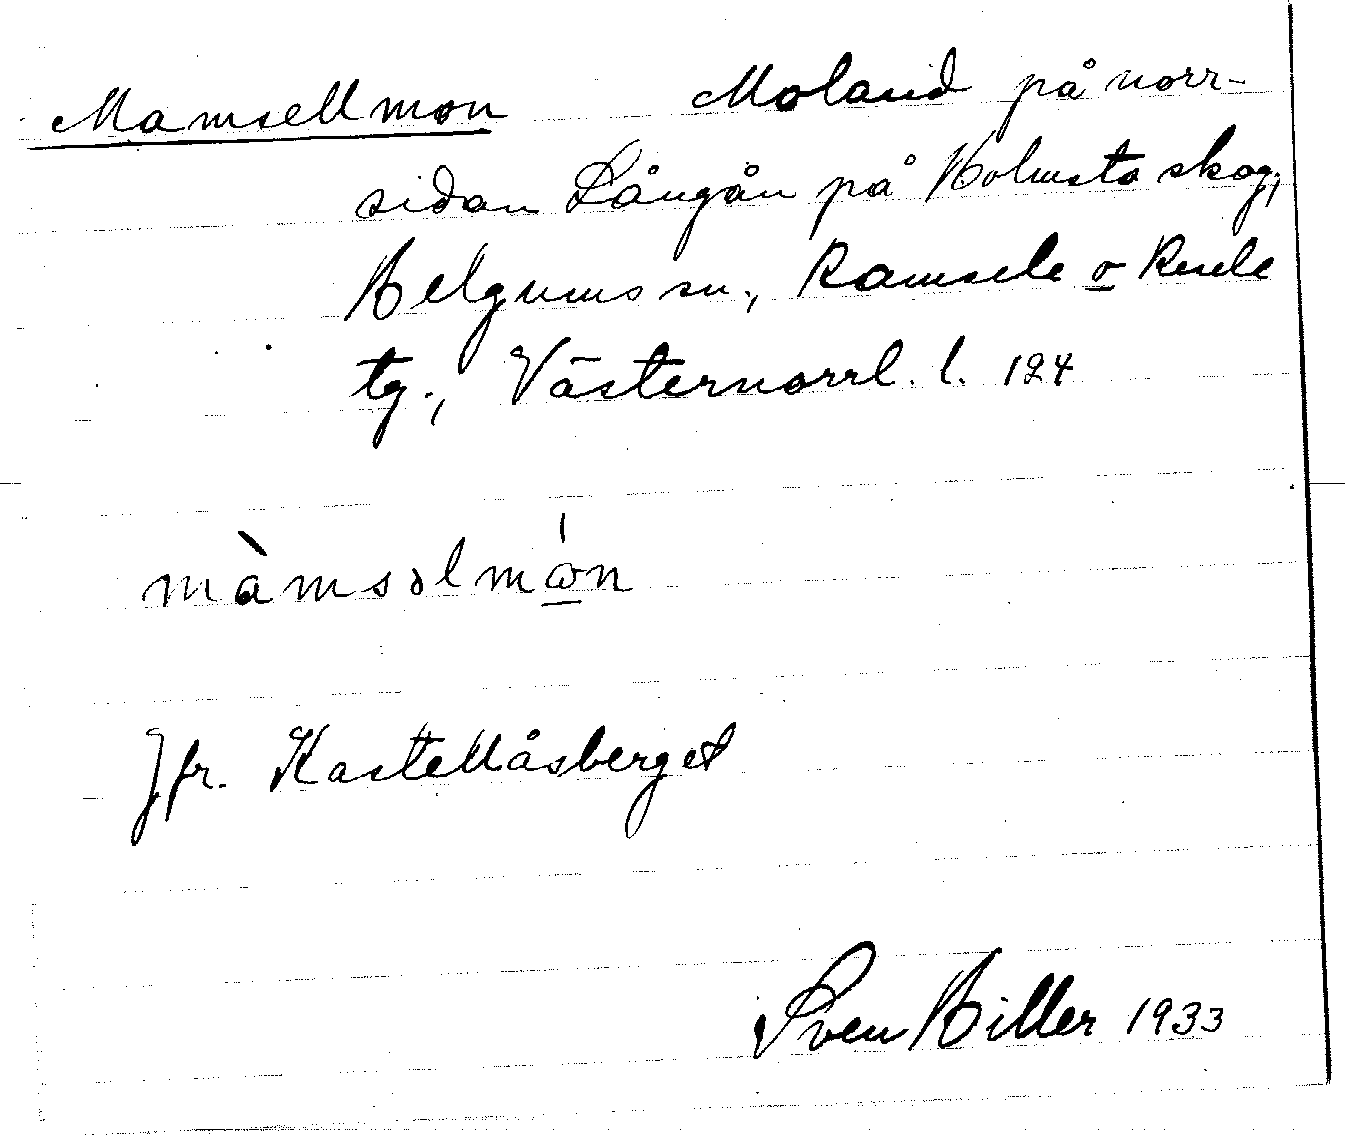 Mamsellmon Moland på norr-
sidan Långån på Holmsta skog,
Helgums sn., Ramsele o Resele
tg., Västernorrl. l. 124
màmsəlmώ̲n
Jfr. Kastellåsberget
Sven Hiller 1933